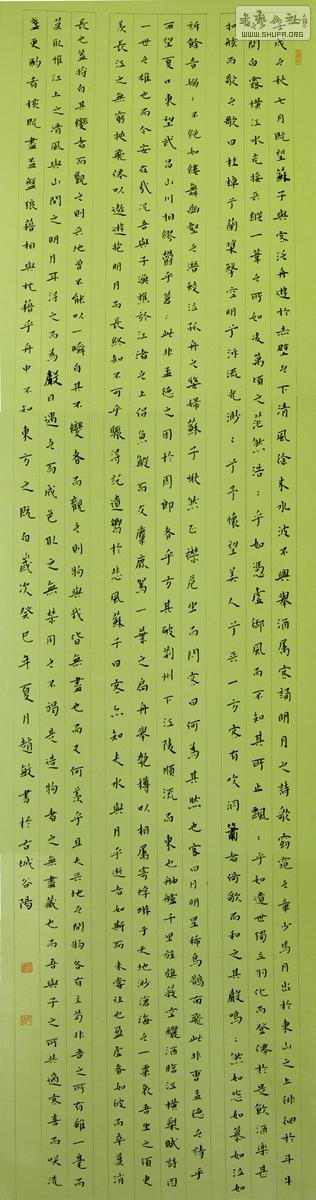 戌之秋七月既望蘇子與客泛舟遊於赤壁之下清風徐来水波不興舉酒属客誦明月之詩歌窈窕之章少焉月出於東山之上徘徊於斗牛
間白露横江水光接天縱一葦之所如凌萬頃之茫然浩々乎如馮虛御風而不知其所止飄々乎如遺世獨立羽化而登僊於是飲酒樂甚
扣舷而歌之歌曰桂棹兮蘭槳擊空明兮泝流光渺々兮予懷望美人兮天一方客有吹洞簫者倚歌而和之其聲鳴々然如怨如慕如泣如
訴餘音嫋々不絕如縷舞幽壑之潛蛟泣孤舟之嫠婦蘇子愀然正襟危坐而問客曰何為其然也客曰月明星稀烏鵲南飛此非曹孟德之詩乎
西望夏口東望武昌山川相繆鬱乎蒼々此非孟德之困於周郎者乎方其破荊州下江陵順流而東也舳艫千里旌旗蔽空釃酒臨江横槊賦詩固
一世之雄也而今安在哉况吾與子漁樵於江渚之上侶魚鰕而友麋鹿駕一葉之扁舟舉匏樽以相属寄蜉蝣于天地渺滄海之一粟哀吾生之須臾
羨長江之無窮挾飛僊以遨遊抱明月而長終知不可乎驟得託遺響於悲風蘇子曰客亦知夫水與月乎逝者如斯而未嘗往也盈虛者如彼而卒莫消
長也盖將自其變者而觀之則天地曾不能以一瞬自其不變者而觀之則物與我皆無盡也而又何羨乎且夫天地之間物各有主苟非吾之所有雖一毫而
莫取惟江上之清風與山間之明月耳得之而為聲目遇之而成色取之無禁用之不竭是造物者之無盡藏也而吾與子之所共適客喜而咲洗
盞更酌肴核既盡盃盤狼藉相與枕藉乎舟中不知東方之既白歲次癸巳年夏月趙敏書於古城谷陽
WWW.SHUFA.ORG